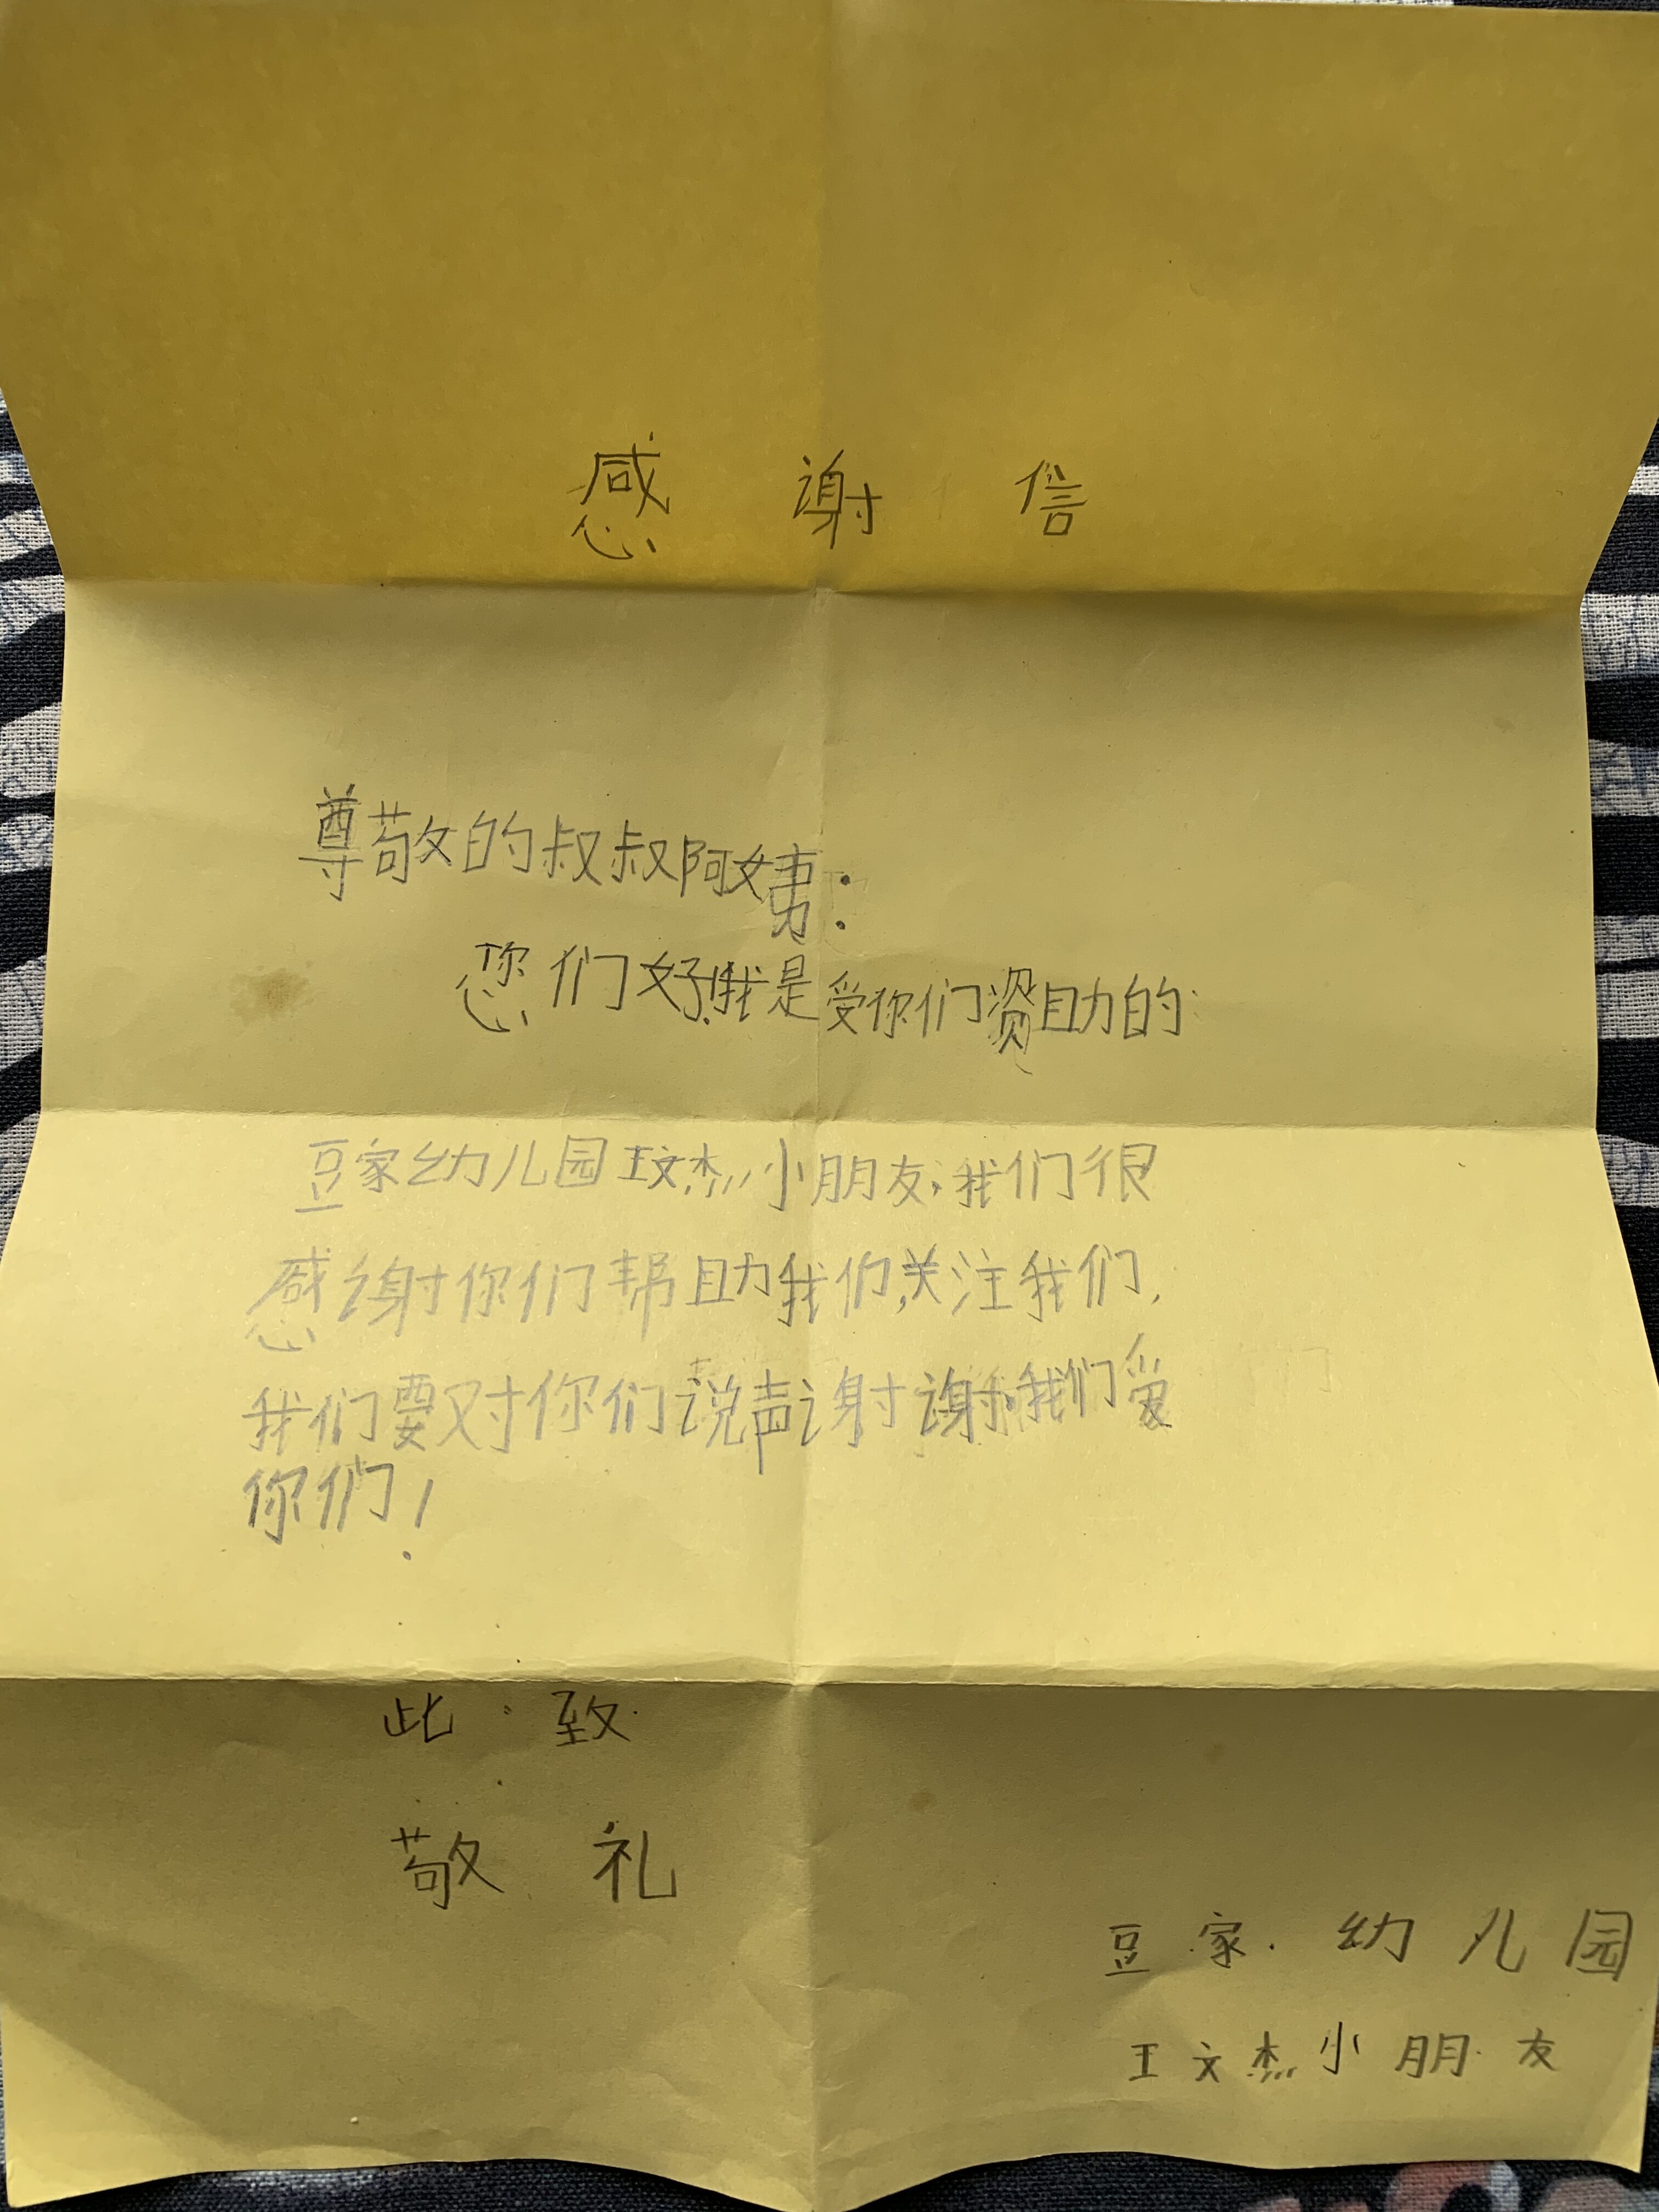 感谢信
尊敬的叔叔阿姨：
您们好!我是受你们资助的
豆家幼儿园王文杰小朋友,我们很
感谢你们帮助我们,关注我们,
我们要对你们说声谢谢,我们爱
你们!
此致
敬礼
豆家幼儿园
王文杰小朋友